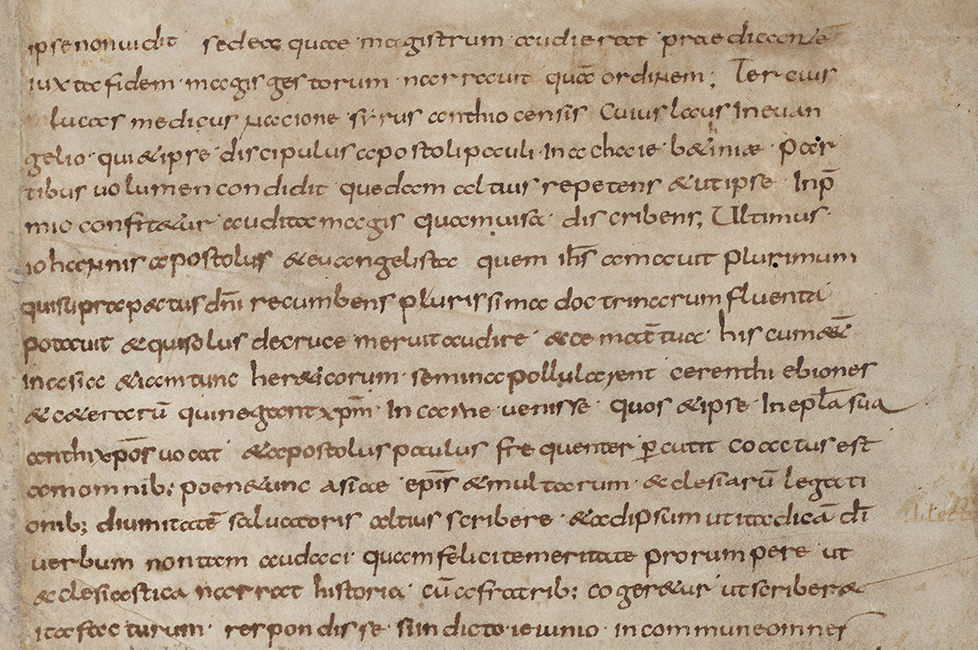 ipse non uidit sed ea quae magistrum audierat praedicantē
iuxta fidem magis gestorum narrauit quā ordinem; Tercius
lucas medicus nacione sirus anthiocensis Cuius laus in euan
gelio qui & ipse discipulus apostoli pauli In achaie b&iniae Par
tibus uolumen condidit quedam altius repetens & ut ipse In p̄
mio confit&ur audita magis quam uisa discribens; Ultimus
iohannis apostolus & euangelista quem ih̄s amauit plurimum
qui supra pectus dn̄i recumbens plurissima doctrinarum fluenta
potauit & qui solus de cruce meruit audire
in asia & iam tunc her&icorum semina pollularent cerenthi ebiones
& c&erarū qui negant xp̄m In carne uenisse quos & ipse In epl̄a sua
anthixp̄os uocat & apostolus paulus frequenter p̱cutit coactus est
ab omnib; poen&unc asiae ep̄is & multarum &clesiarū legati
onib; diuinitatē saluatoris altius scribere & ad ipsum ut ita dicā dī
uerbum non tam audaci quam felici temeritate prorumpere ut
&clesiastica narrat historia cū a fratrib; coger&ur ut scriber&
ita facturum respondisse si indicto ieiunio in commune omnes